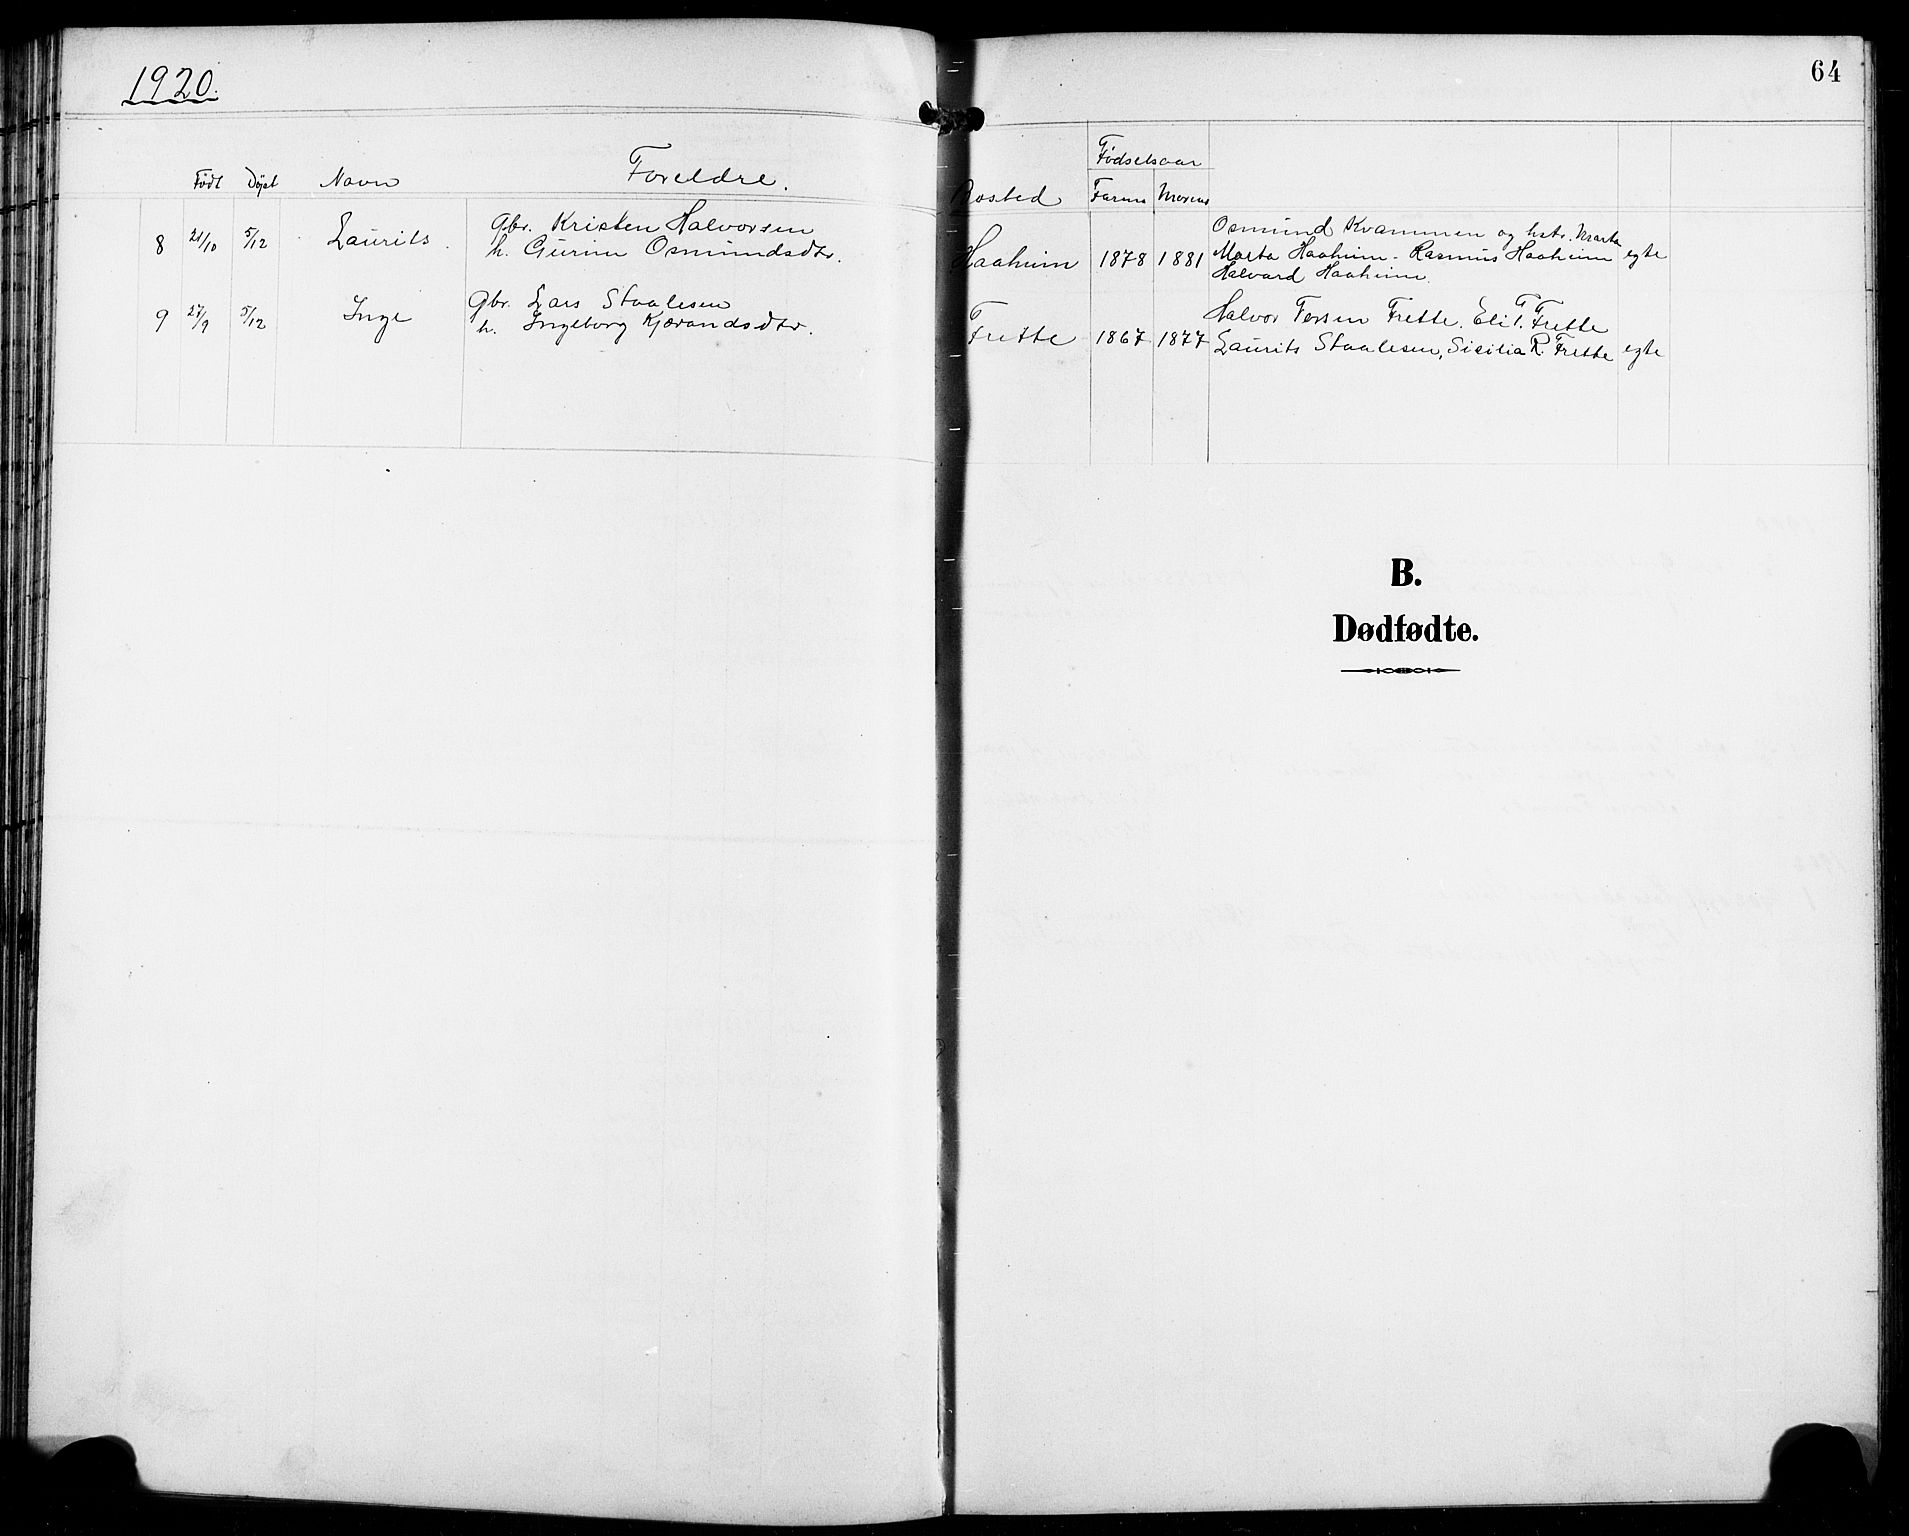 1920.
64
Født Døpt Navn Foreldre.
Bosted Fødselsaar
Farens Morens
8 21/10 5/12 Laurits. Gbr. Kristen Halvorsen
h. Gurine Osmundsdtr.
Haaheim 1878 1881 Osmund Kvammen og hstr. Marta
Marta Haaheim - Rasmus Haaheim egte
Halvard Haaheim.
9 27/9 5/12 Inge Gbr. Lars Staalesen
h. Ingeborg Kjærandsdtr.
Frette 1867 1877 Halvor Frette. Eli T. Frette
Laurits Staalesen, Sisilia R. Frette egte
B.
Dødfødte.